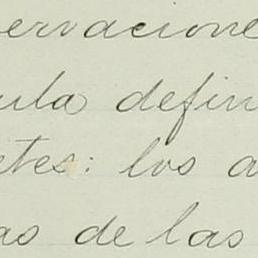 ervacione
ula defin
etes: los a
as de las